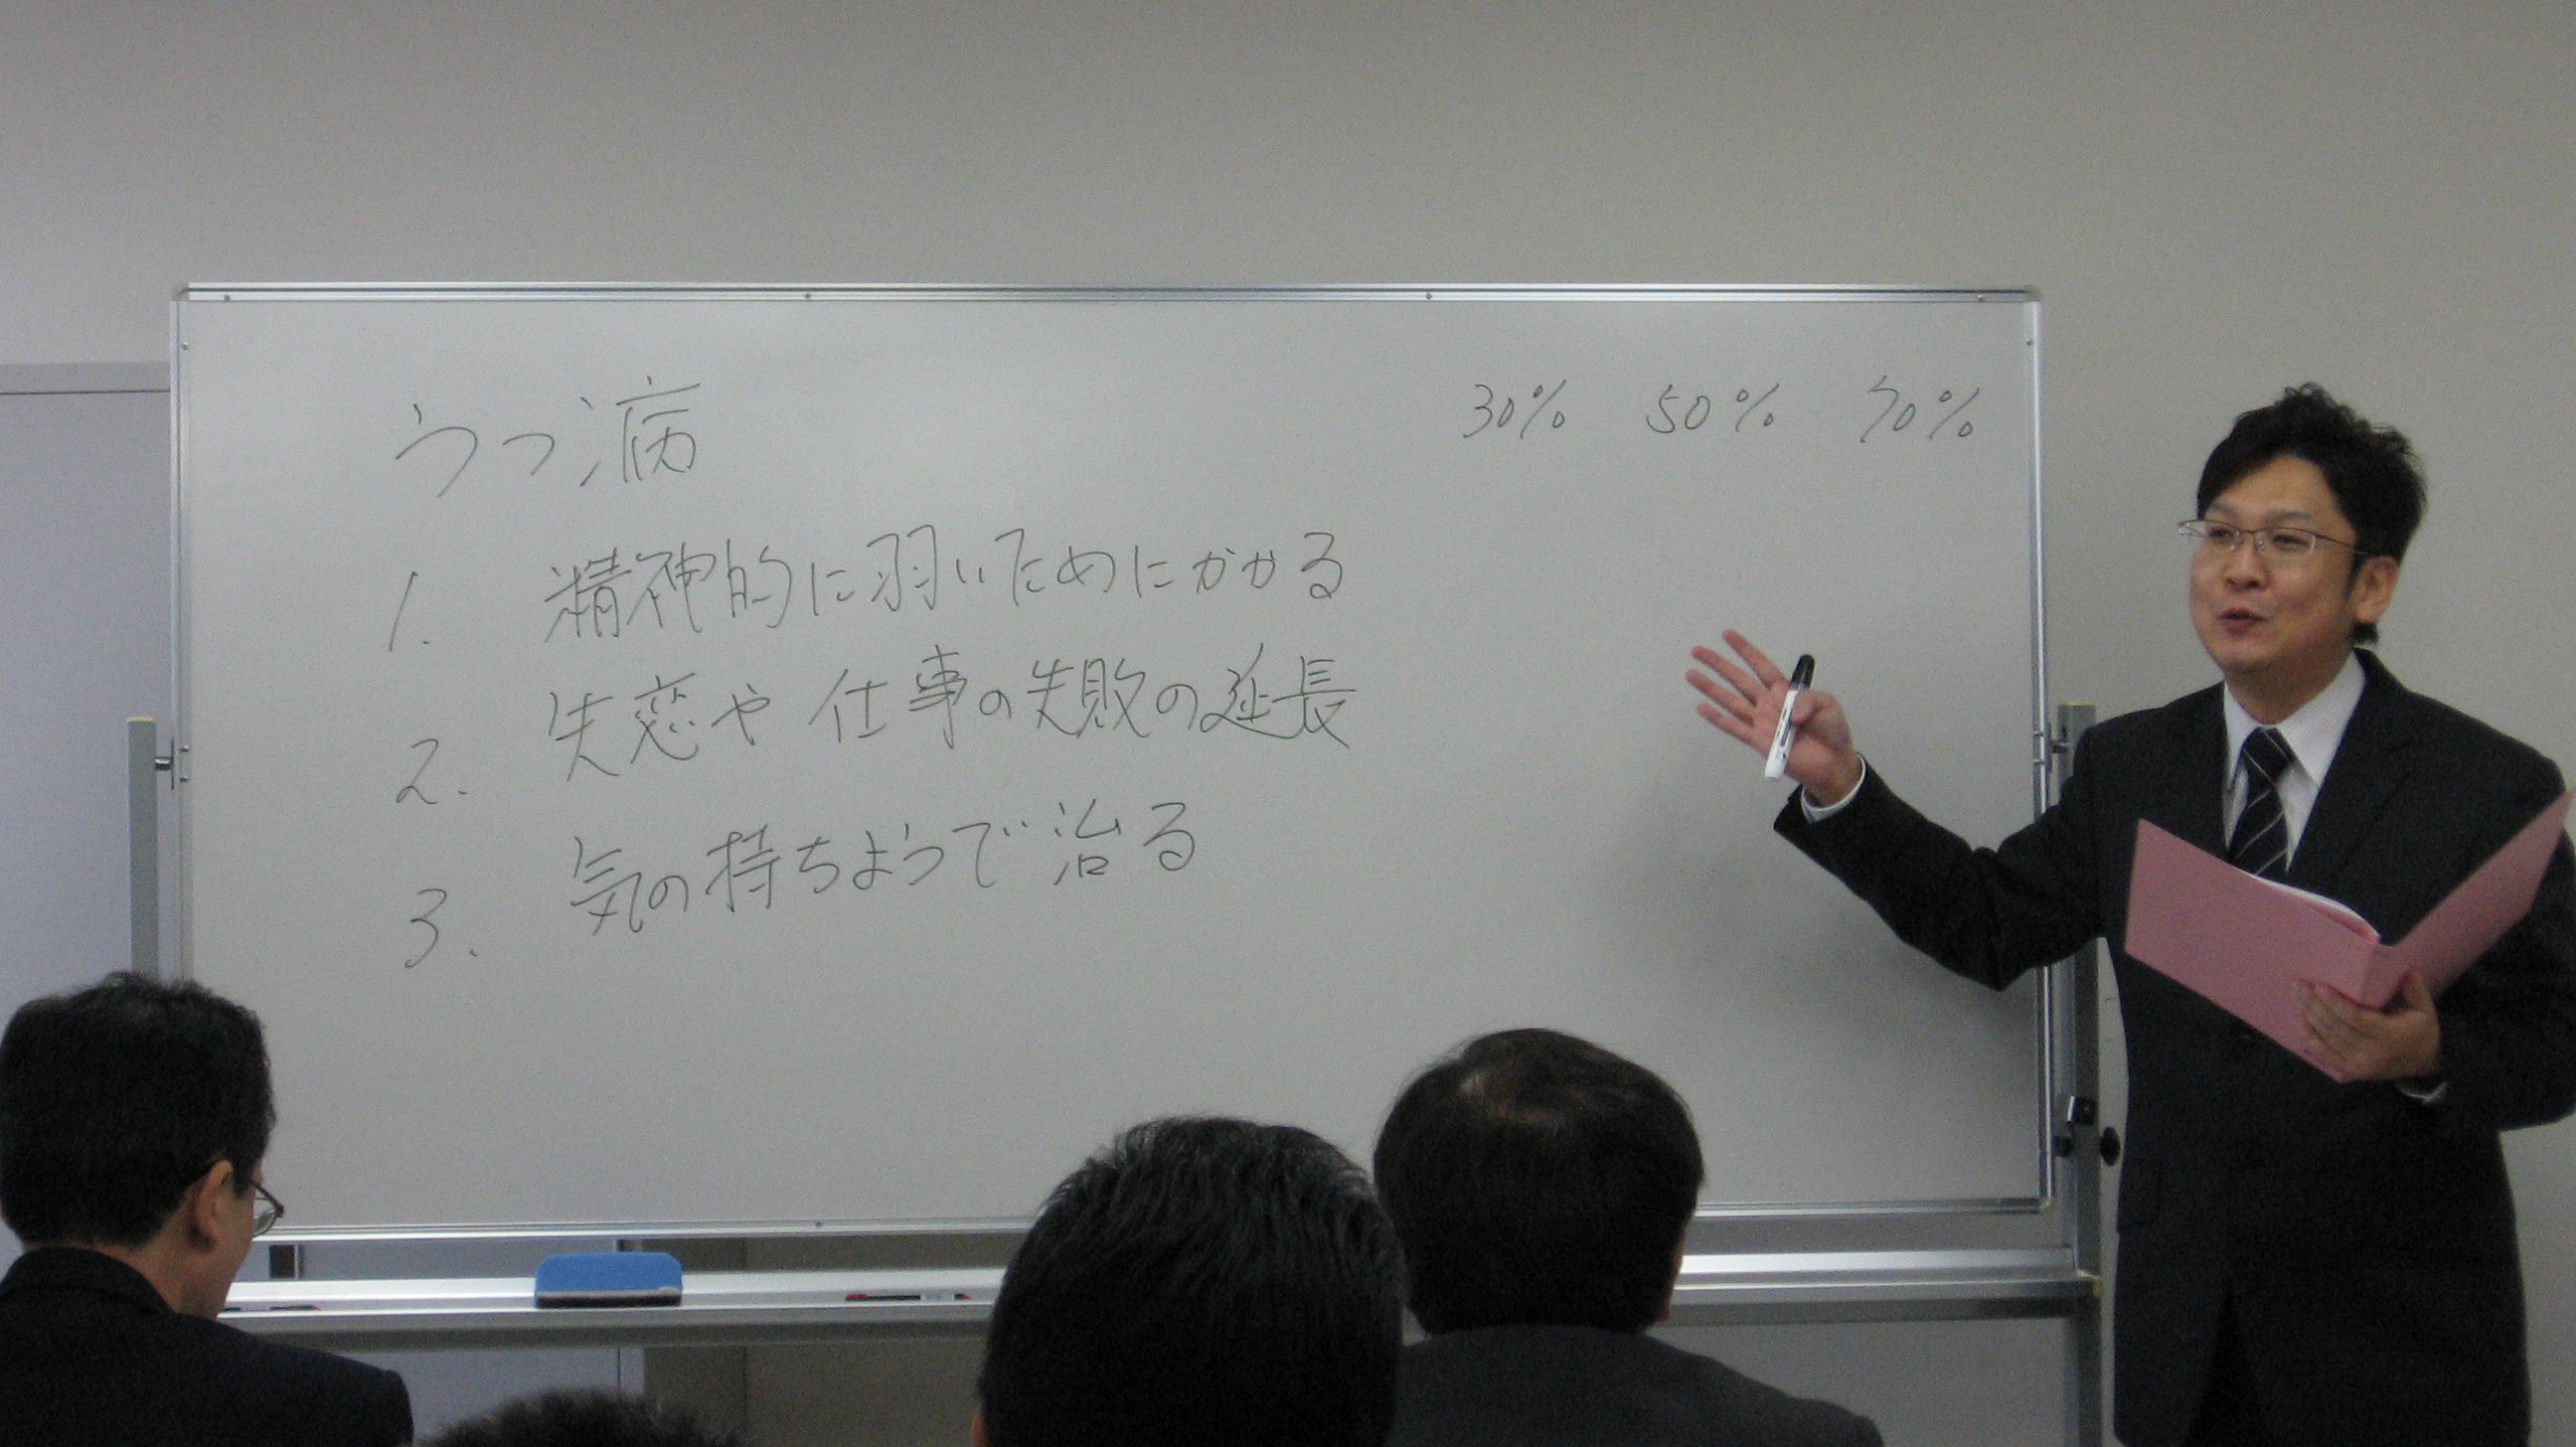 うつ病
30% 50% 70%
1. 精神的に弱いためにかかる
2. 失恋や仕事の失敗の延長
3. 気の持ちようで治る